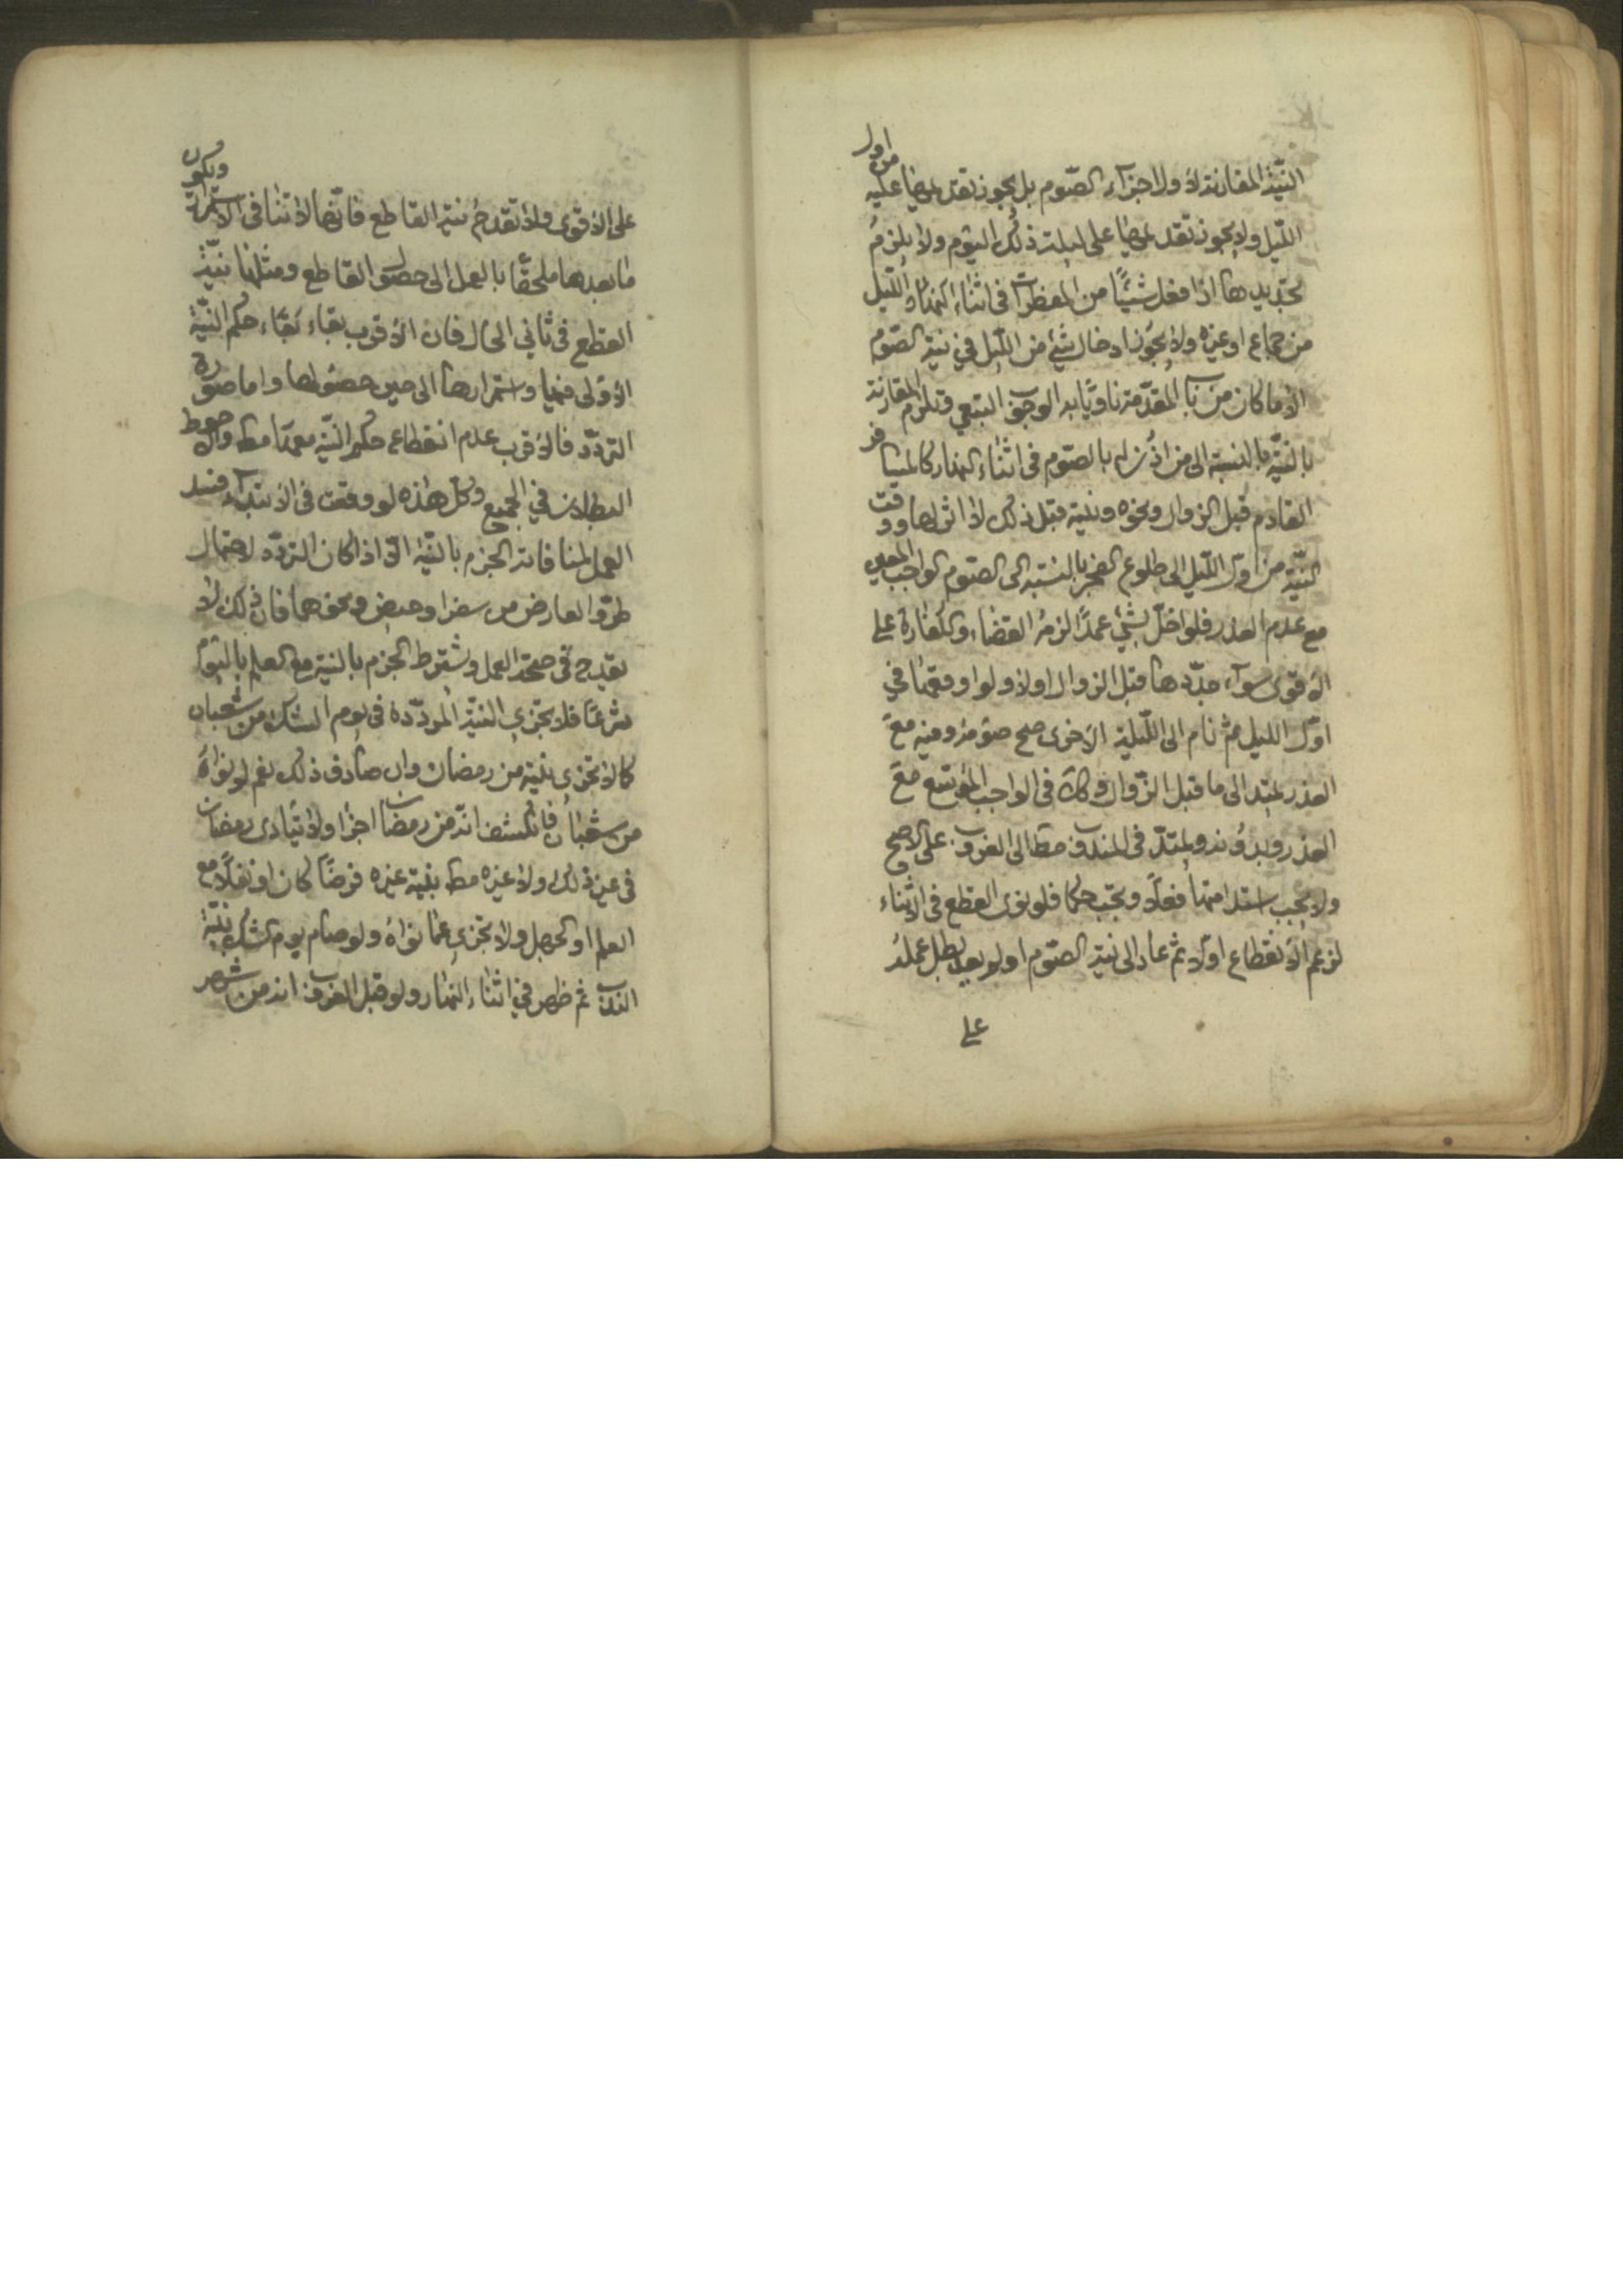 النيّة المقارنة لاول اجزآء الصّوم بل يجوز تقديمها عليه من اول
اللّيل ولا يجوز تقديمها على ليلة ذلك اليوم ولا يلزمُ
تجديدها اذا فعل شيئًا من المفطرات فى اثناء اللّيل
من جماع او غيره ولا يجوز ادخال شئ من اللّيل في نيّة الصّوم
الّا ما كان من باب المقدّمة ناويًا به الوجوب التبعي وتلزم المقارنة
بالنيّة بالنسبة الى من اذن له بالصّوم فى اثناء النهار كالمسافر
القادم قبل الزوال ونحوه ونيّته قبل ذلك لا اثر لها ووقت
النيّة من اوّل اللّيل الى طلوع الفجر بالنسبة الى الصّوم الواجب المعين
مع عدم العذر فلو اخلّ بشئ عمدًا لزمه القضاء والكفارة على
الاقوى سوآء جدّدها قبل الزوال اولا ولو اوقعها في
اوّل الليل ثم نام الى اللّيلة الاخرى صح صومه وفيه مع
العذر يمتد الى ما قبل الزّوال وكذا فى الواجب الموسّع مع
العذر وبدونه ويمتدّ فى المندوب مط الى الغروب على الاصح
ولا يجب استدامتها فعلًا ويجب حكما فلو نوى القطع فى الاثناء
لزعم الانقطاع اولا ثم عاد الى نيّة الصّوم او لم يعد بطل عمله
على
على الاقوى ولا تقدح نيّة القاطع فانّها لا تنافى الاستمرارية ويكون
ما بعدها ملحقًا بالعمل الى حصول القاطع ومثلها نيّة
القطع فى ثاني الحال فان الاقرب بقاء حكم النيّة
الاولى فيها واستمرارها الى حين حصولها واما صورة
التردّد فالاقرب عدم انقطاع حكم النيّة معها مط والاحوط
البطلان في الجميع وكل هذه لو وقعت فى الابتدآء فسد
العمل لمنافاته الجزم بالنيّة الّا اذا كان التردّد لاحتمال
طروّ العارض من سفر او حيض ونحوهما فان ذلك لا
يقدح فى صحّة العمل ويشترط الجزم بالنيّة مع العلم باليوم
شرعًا فلا تجزي النيّة المردّدة فى يوم الشك من شعبان
كما لا تجزى بنيّة من رمضان وان صادف ذلك نعم لو نواه
من شعبان فانكشف انه من رمضان اجزأ ولا يتأدى رمضان
فى غير ذلك ولا غيره مط بنيّة غيره فرضًا كان او نفلًا مع
العلم او الجهل ولا تجزي عمّا نواه ولو صام يوم الشك بنيّة
الندب ثم ظهر في اثناء النهار ولو قبل الغروب انه من شهر